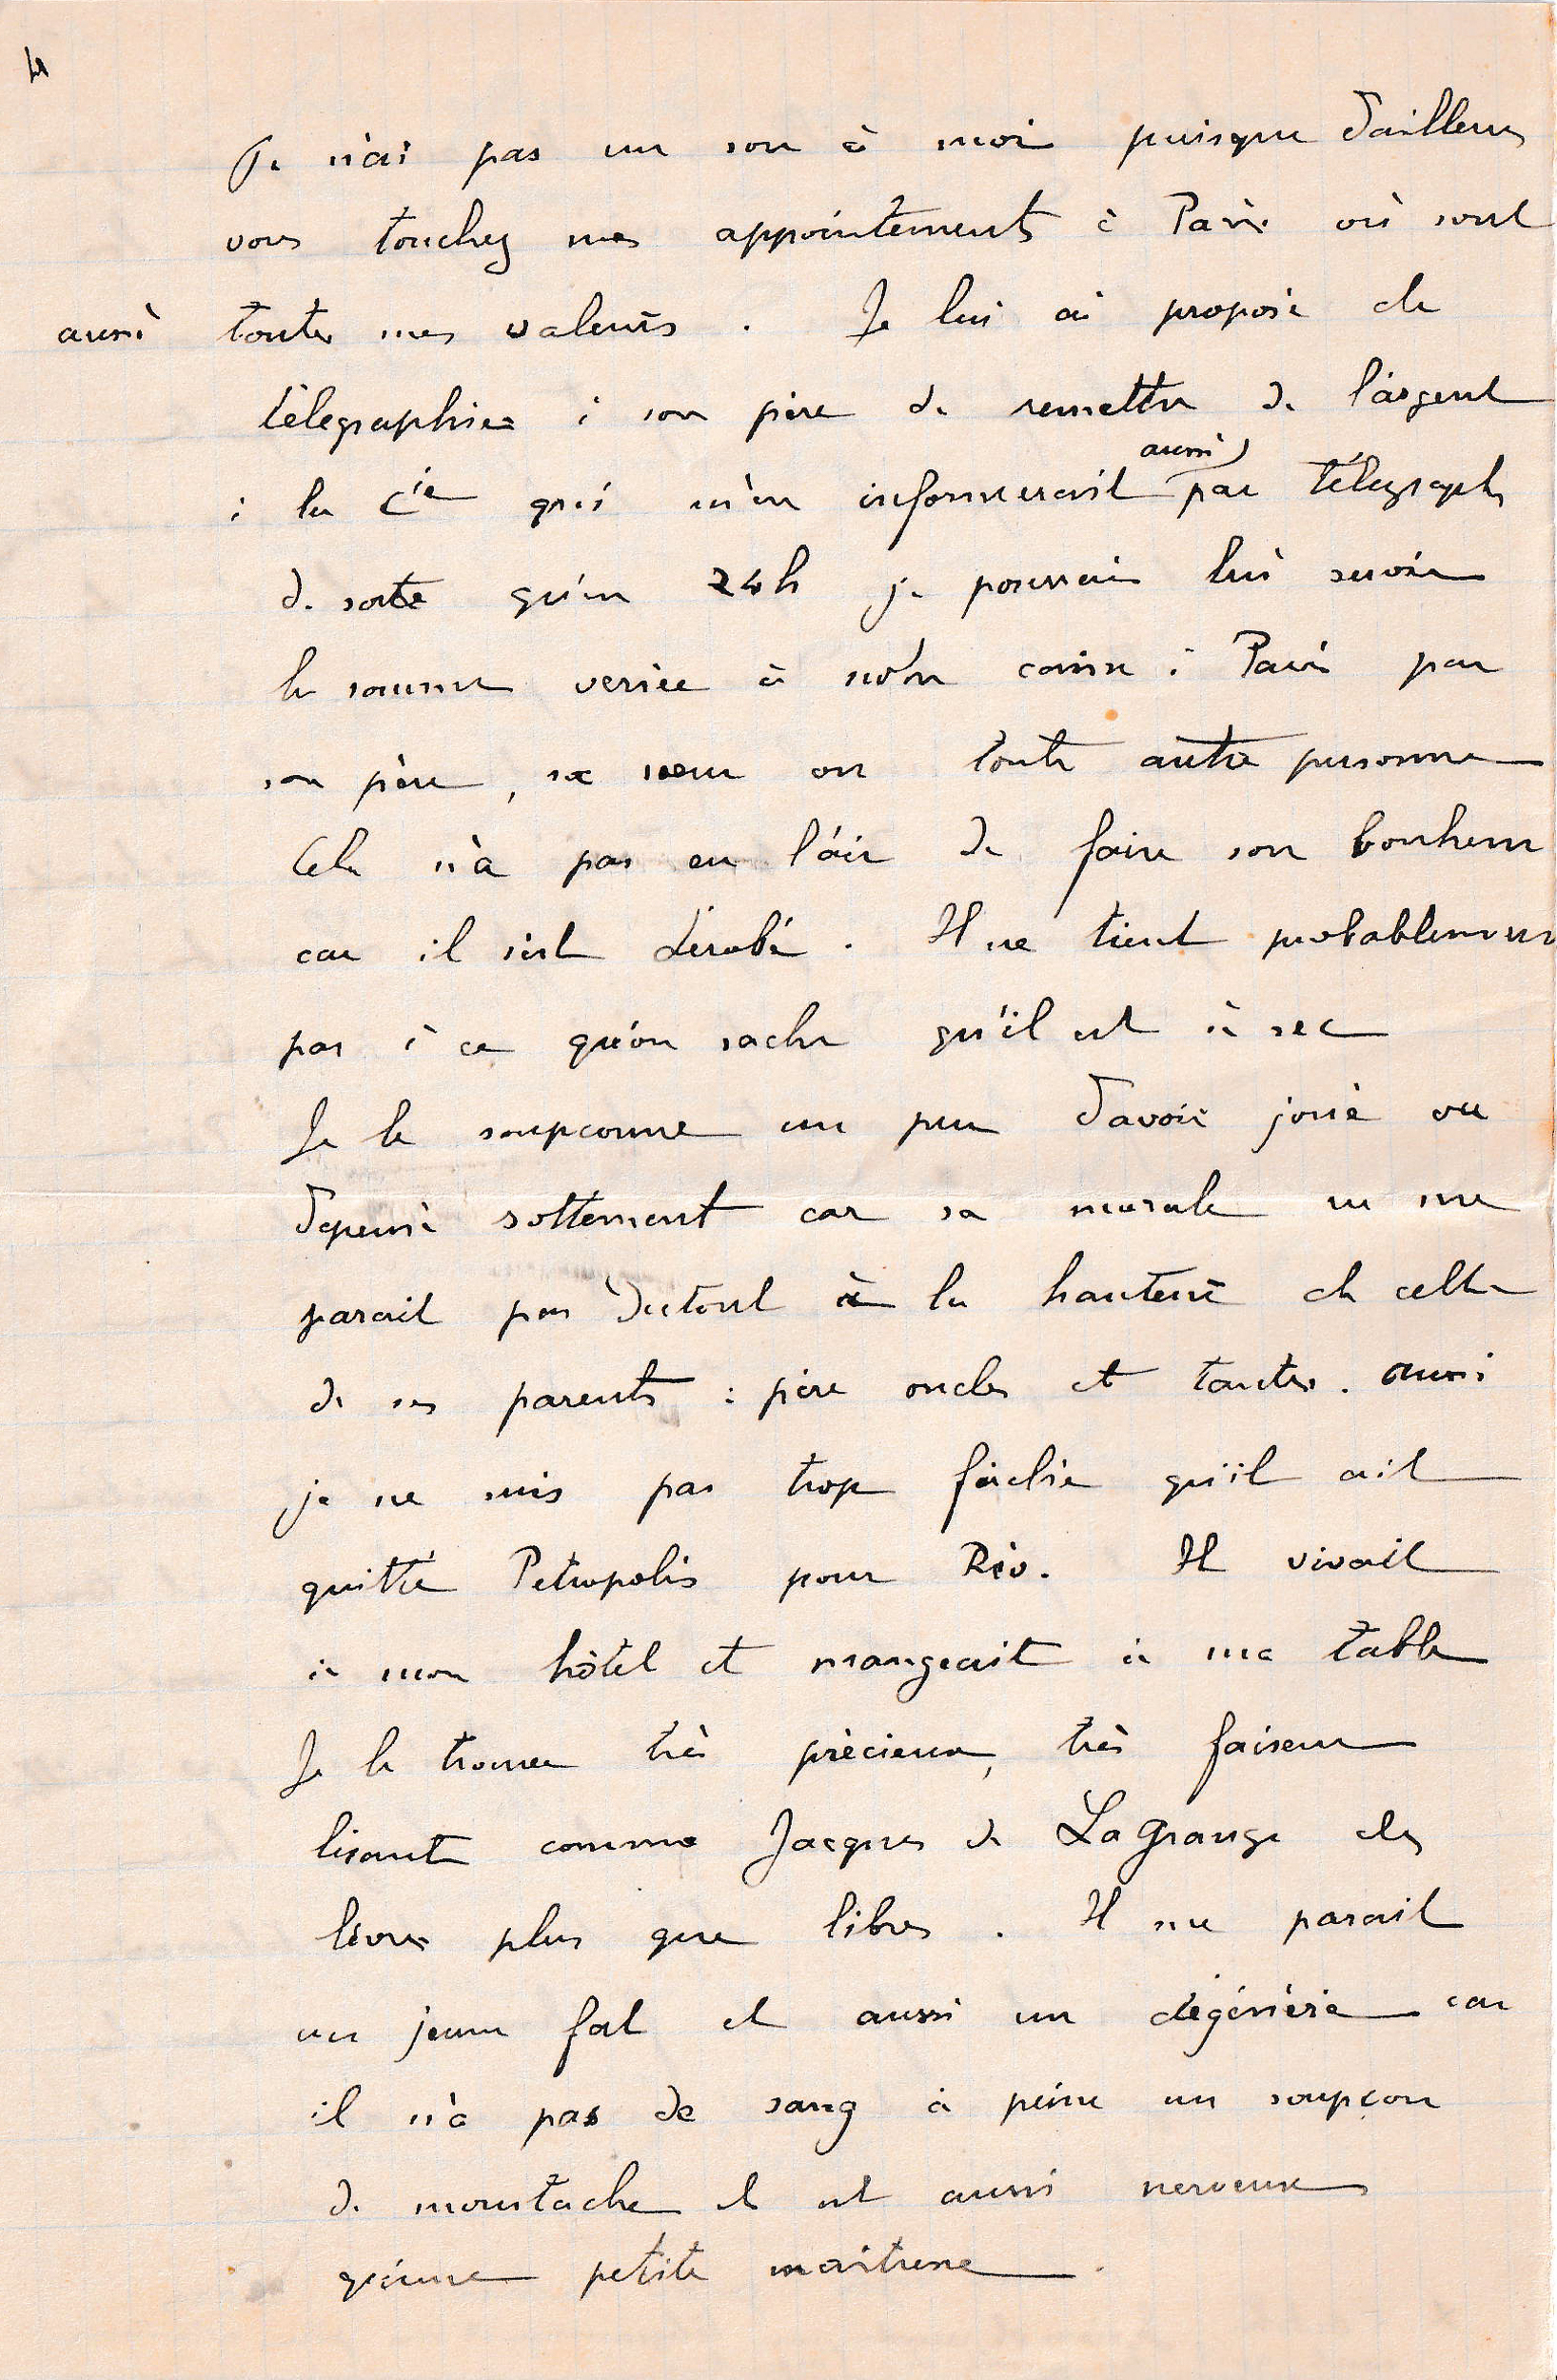 4
Je n'ai pas un sou à moi puisque d'ailleurs
vous touchez mes appointements à Paris où sont
aussi toutes mes valeurs. Je lui ai proposé de
télégraphier à son père de remettre de l'argent
aussi
à la Cie qui m'en informerait par télégraphe
de sorte qu'en 24h je pourrais lui servir
la somme versée à notre caisse à Paris par
son père, sa sœur ou toute autre personne
Cela n'a pas eu l'air de faire son bonheur
car il s'est dérobé. Il ne tient probablement
pas à ce qu'on sache qu'il est à sec
Je le soupçonne un peu d'avoir joué ou
dépensé sottement car sa morale ne me
parait pas du tout à la hauteur de celle
de ses parents : père oncles et tantes. Aussi
je ne suis pas trop fâché qu'il ait
quitté Petropolis pour Rio. Il vivait
à mon hôtel et mangeait à ma table
Je le trouve très précieux, très faiseur
lisant comme Jacques de La Grange des
livres plus que libres. Il me parait
un jeune fat et aussi un dégénéré car
il n'a pas de sang à peine un soupçon
de moustache et est aussi nerveux
qu'une petite maitresse.